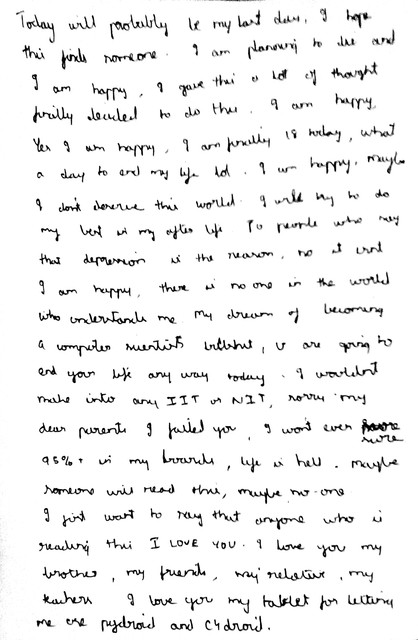 Today will probably be my last day, I hope
this finds someone. I am planning to die and
I am happy, I gave this a lot of thought
finally decided to do this. I am happy,
Yes I am happy, I am finally 18 today, what
a day to end my life lol. I am happy. maybe
I dont deserve this world. I will try to do
my best in my after life. To people who say
that depression is the reason, no it isnt
I am happy, there is no one in the world
who understands me my dream of becoming
a computer scientists bullshit, u are going to
end your life any way today. I wouldnt
make into any IIT or NIT, sorry my
dear parents I failed you, I wont even score
95%+ in my boards, life is hell. maybe
someone will read this, maybe no-one
I just want to say that anyone who is
reading this I LOVE YOU. I love you my
brother, my friends, my relative, my
teachers I love you my tablet for letting
me use pydroid and C4droid.